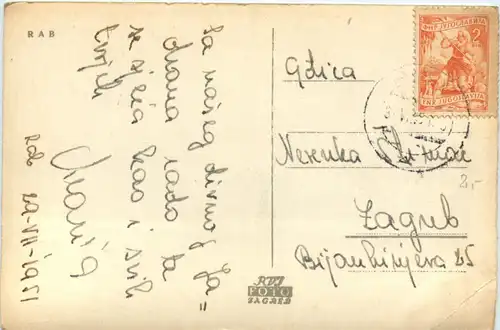 RAB
sa našeg divnog Ja=
drana rado ta
se sjeća kao i svih
tvojih
Marija
Rab 29-VII-1951
FNR JUGOSLAVIJA
2
Gđica
Nevenka
Zagreb
Bijankinijeva 25
2,-
FOTO
ZAGREB